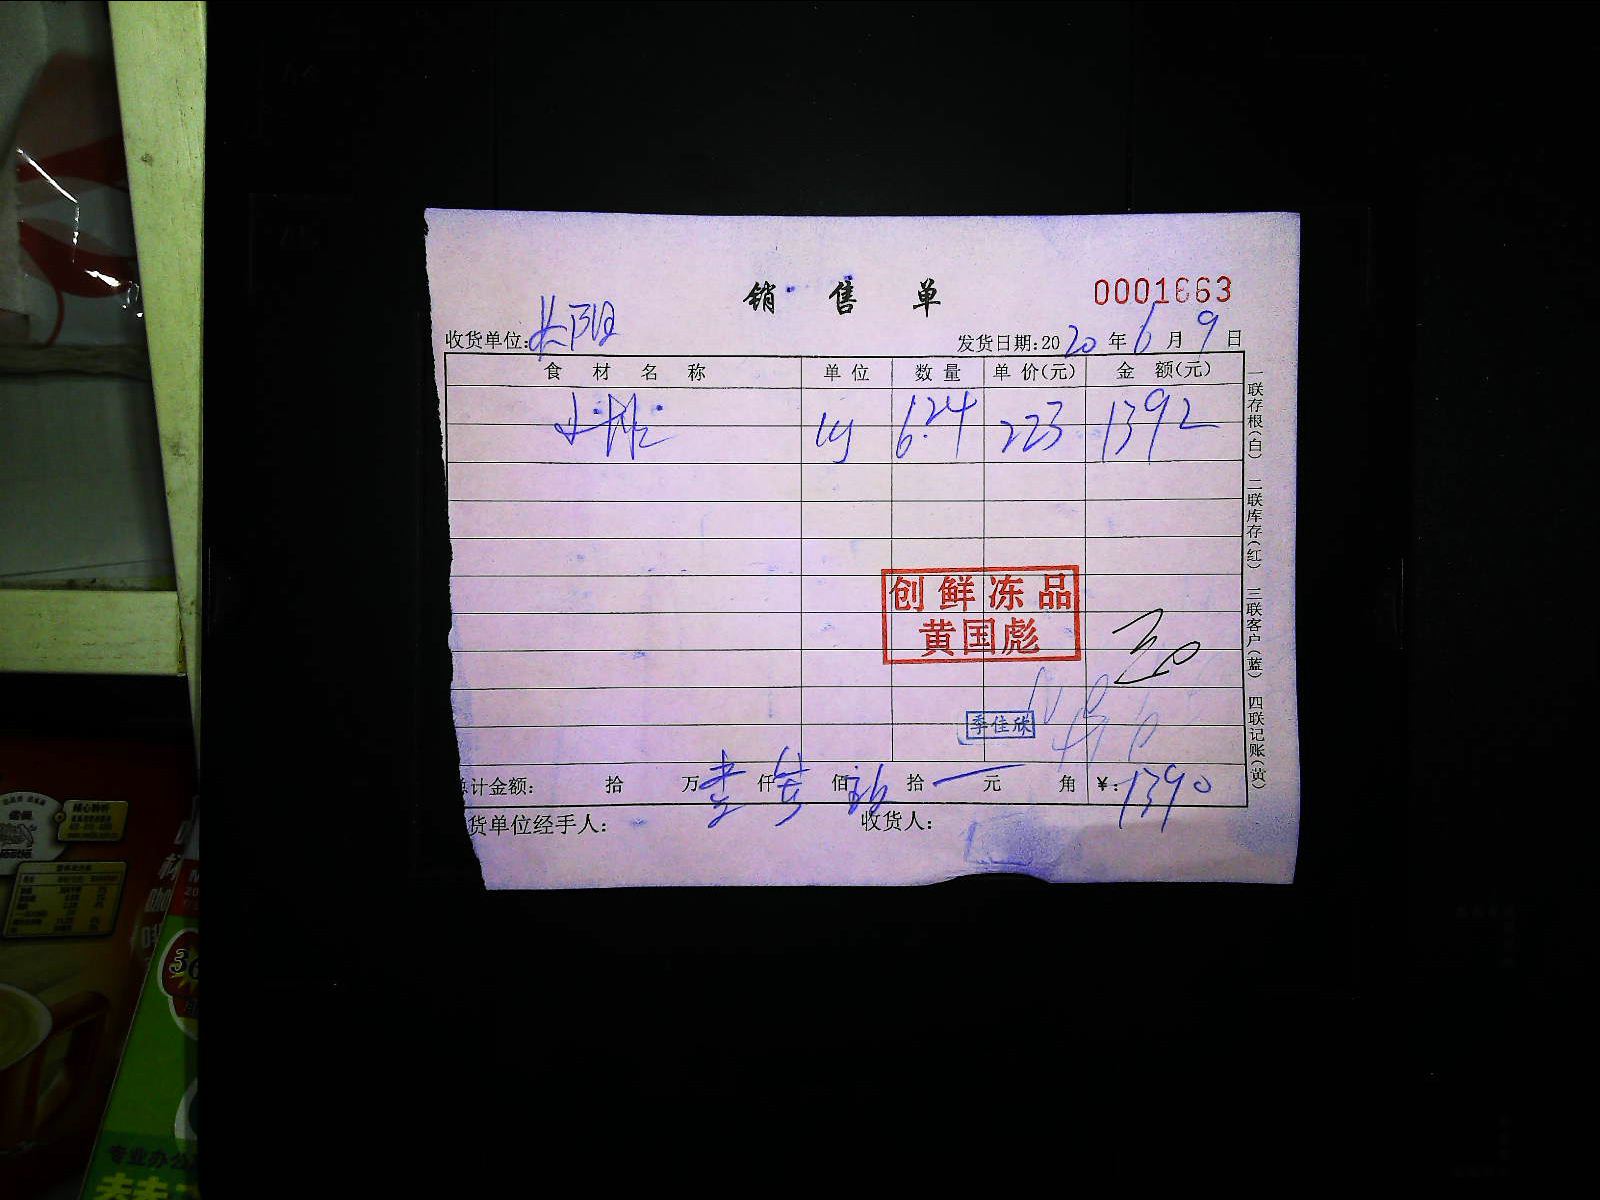 销售单
0001663
收货单位:长阳
发货日期:2020年6月9日
食材名称 单位 数量 单价(元) 金额(元)
kg 6.24 223 1392
创鲜冻品
黄国彪
季佳欣
总计金额: 拾 万 壹 仟 佰 拾 元 角 ¥:1390
货单位经手人: 收货人:
一联存根(白) 二联库存(红) 三联客户(蓝) 四联记账(黄)
专业办公